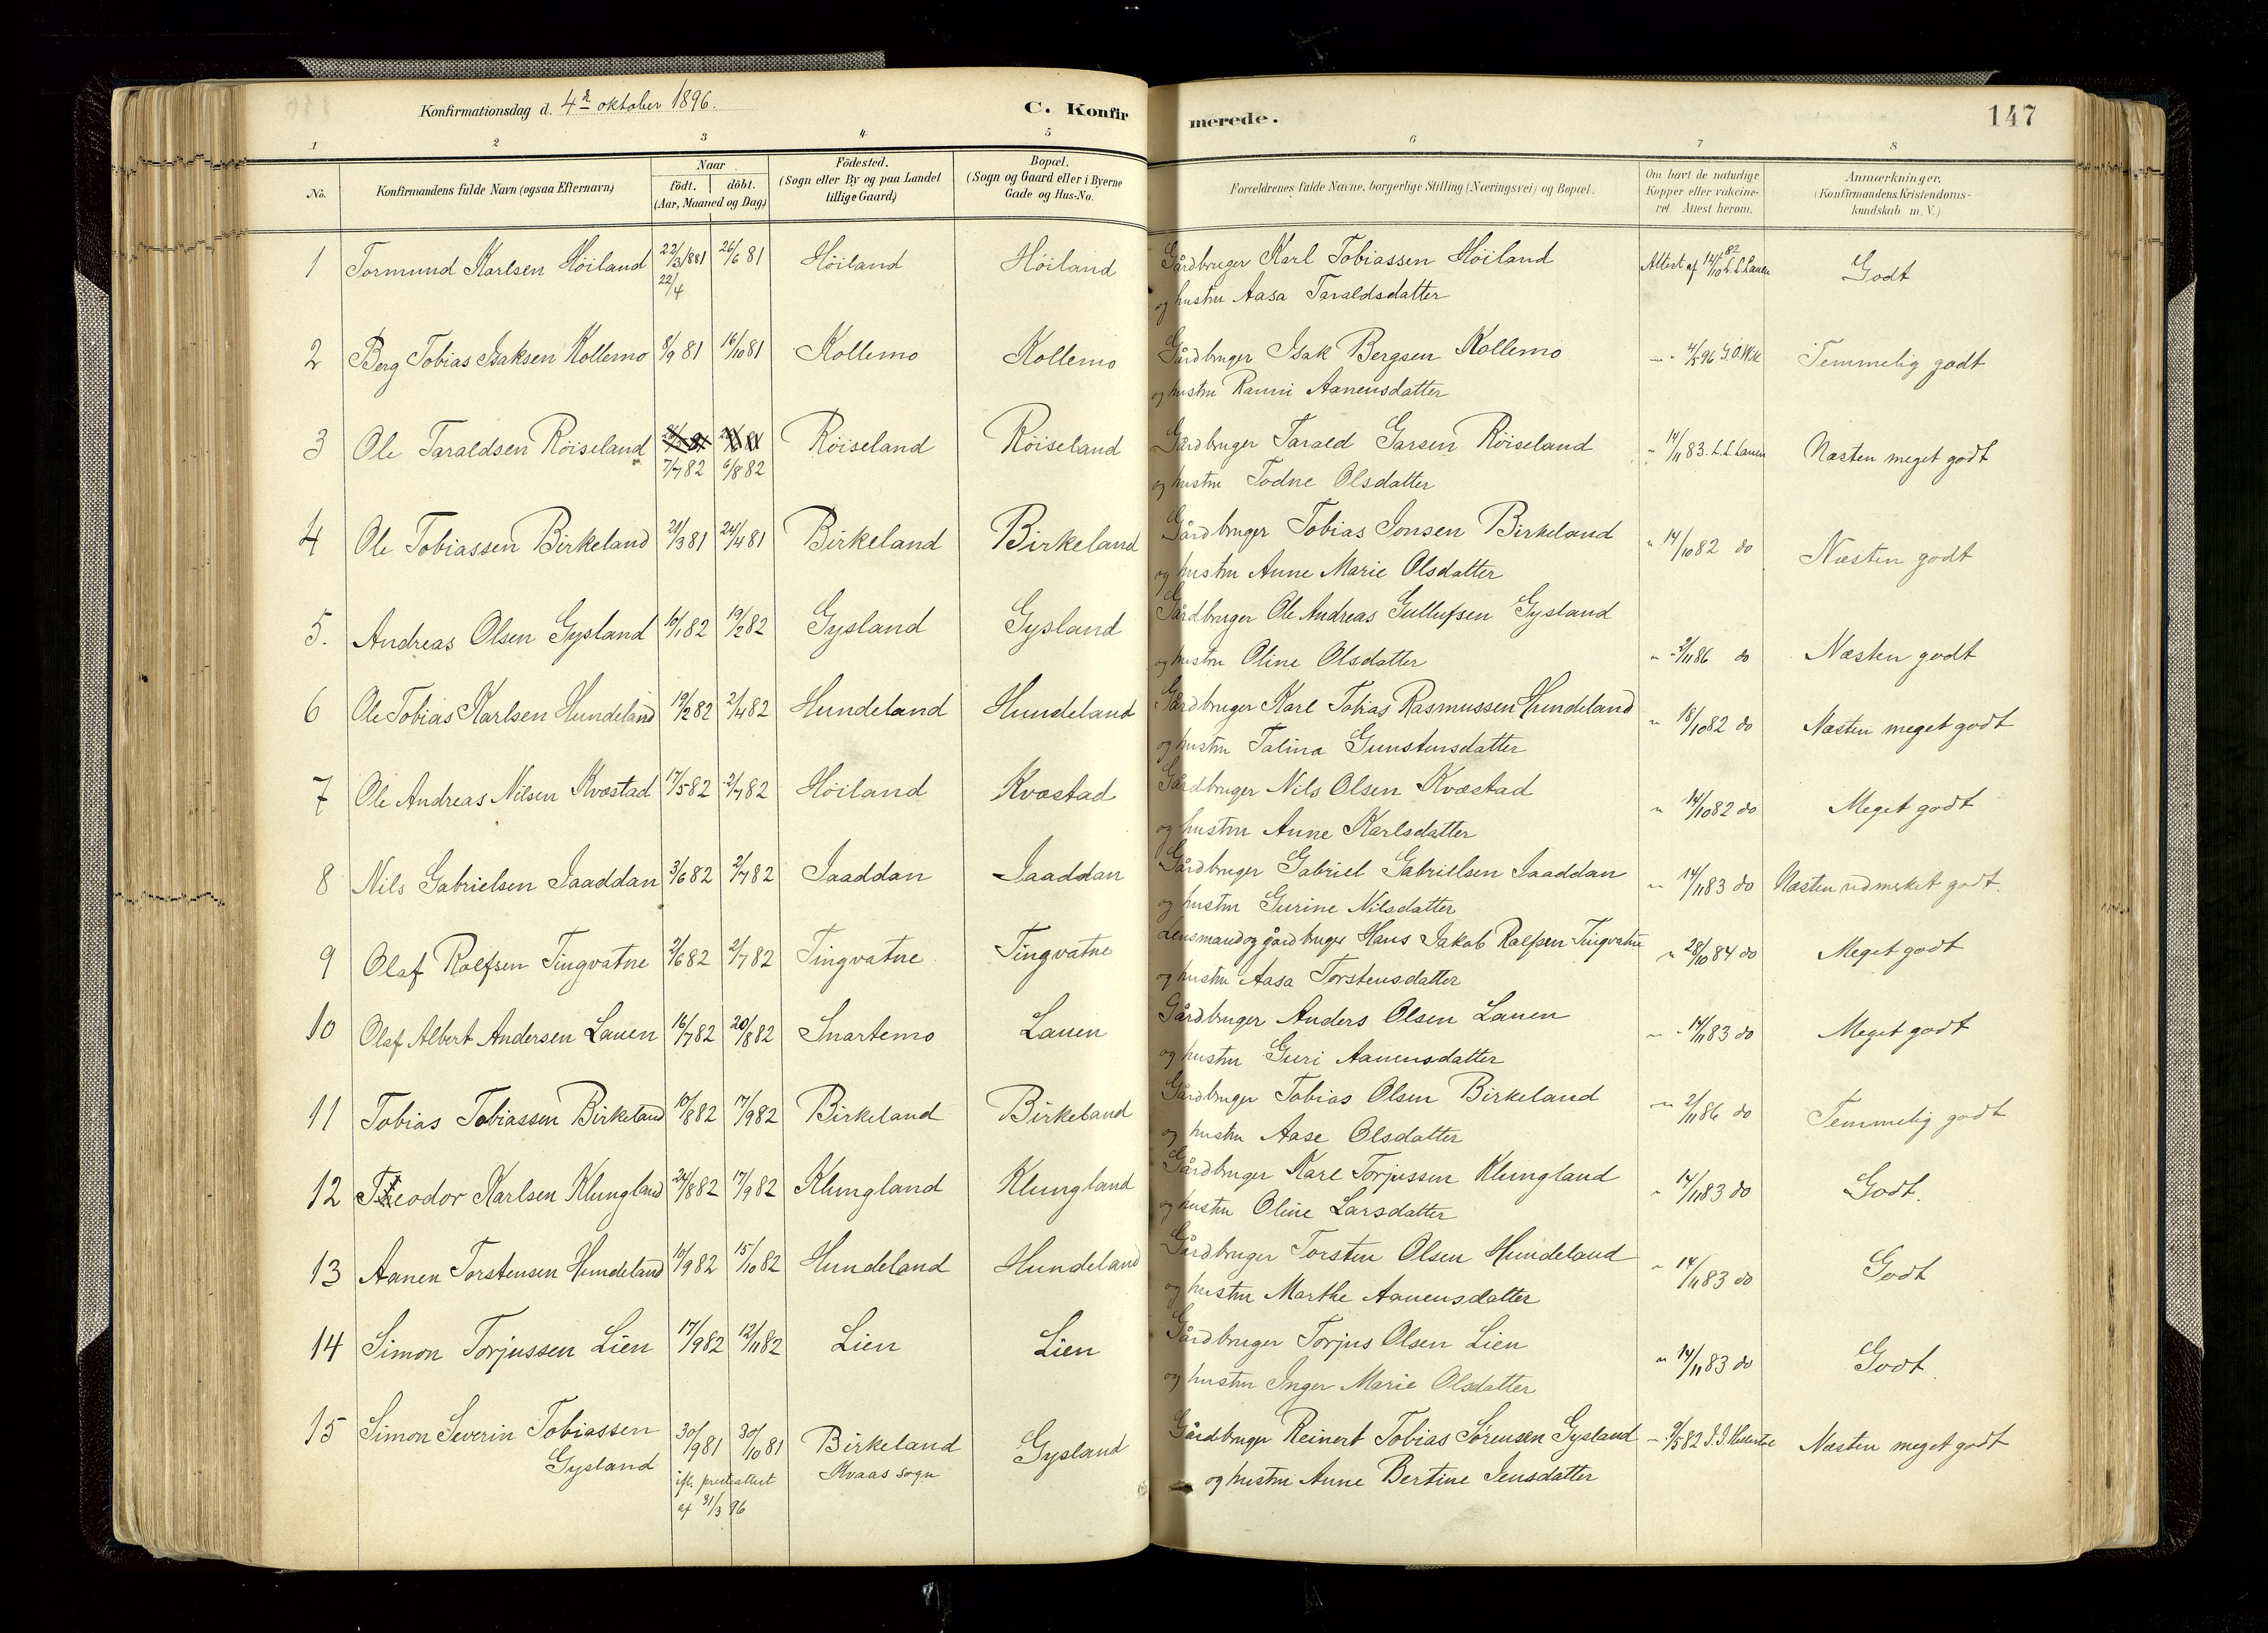 Konfirmationsdag d. 4de oktober 1896. C. Konfirmerede. 147
1 2 3 4 5 6 7 8
No. Konfirmandens fulde Navn (ogsaa Efternavn) Naar födt. döbt. (Aar, Maaned og Dag) Födested. (Sogn eller By og paa Landet tillige Gaard) Bopæl. (Sogn og Gaard eller i Byerne Gade og Hus-No. Forældrenes fulde Navne, borgerlige Stilling (Næringsvei) og Bopæl. Om havt de naturlige Kopper eller vakcineret. Attest herom. Anmærkninger, (Konfirmandens Kristendomskundskab m. V.)
1 Tormund Karlsen Höiland 22/3 1881 26/6 81 Höiland Höiland Gårdbruger Karl Tobiassen Höiland Attest af 14/10 82 L. L. Lauen Godt
22/4 og hustru Aasa Taraldsdatter
2 Berg Tobias Isaksen Kollemo 8/9 81 16/10 81 Kollemo Kollemo Gårdbruger Isak Bergsen Kollemo 96 Temmelig godt
og hustru Ranni Aanensdatter
3 Ole Taraldsen Röiseland Röiseland Röiseland Gårdbruger Tarald Garsen Röiseland " 14/11 83. L. L. Lauen Næsten meget godt
7/7 82 6/8 82 og hustru Todne Olsdatter
4 Ole Tobiassen Birkeland 21/3 81 24/4 81 Birkeland Birkeland Gårdbruger Tobias Jonsen Birkeland " 14/10 82 do Næsten godt
og hustru Anne Marie Olsdatter
5. Andreas Olsen Gysland 10/1 82 19/2 82 Gysland Gysland Gårdbruger Ole Andreas Gullufsen Gysland
og hustru Oline Olsdatter " 2/11 86 do Næsten godt
6 Ole Tobias Karlsen Hundeland 19/2 82 2/4 82 Hundeland Hundeland Gårdbruger Karl Tobias Rasmussen Hundeland " 18/10 82 do Næsten meget godt
og hustru Talina Gunstensdatter
7 Ole Andreas Nilsen Kvæstad 17/5 82 2/7 82 Höiland Kvæstad Gårdbruger Nils Olsen Kvæstad " 14/10 82 do Meget godt
og hustru Anne Karlsdatter
8 Nils Gabrielsen Jaaddan 3/6 82 2/7 82 Jaaddan Jaaddan Gårdbruger Gabriel Gabrielsen Jaaddan " 14/11 83 do Næsten udmerket godt.
og hustru Gurine Nilsdatter
9 Olaf Rolfsen Tingvatne 2/6 82 2/7 82 Tingvatne Tingvatne Lensmand og gårdbruger Hans Jakob Rolfsen Tingvatne " 28/10 84 do Meget godt
og hustru Aasa Torstensdatter
10 Olaf Albert Andersen Lauen 16/7 82 20/8 82 Snartemo Lauen Gårdbruger Anders Olsen Lauen " 14/11 83 do Meget godt
og hustru Guri Aanensdatter
11 Tobias Tobiassen Birkeland 10/8 82 17/9 82 Birkeland Birkeland Gårdbruger Tobias Olsen Birkeland " 2/11 86 do Temmelig godt
og hustru Aase Olsdatter
12 Theodor Karlsen Klungland 24/8 82 17/9 82 Klungland Klungland Gårdbruger Karl Torjussen Klungland " 14/11 83 do Godt.
og hustru Oline Larsdatter
13 Aanen Torstensen Hundeland 10/9 82 15/10 82 Hundeland Hundeland Gårdbruger Torsten Olsen Hundeland " 14/11 83 do Godt
og hustru Marthe Aanensdatter
14 Simon Torjussen Lien 17/9 82 12/11 82 Lien Lien Gårdbruger Torjus Olsen Lien " 14/11 83 do Godt.
og hustru Inger Marie Olsdatter
15 Simon Severin Tobiassen 30/9 81 30/10 81 Birkeland Gysland Gårdbruger Reinert Tobias Sörensen Gysland " 9/5 82 Næsten meget godt
Gysland ifl. prestattest Kvaas sogn og hustru Anne Bertine Jensdatter
af 31/3 96